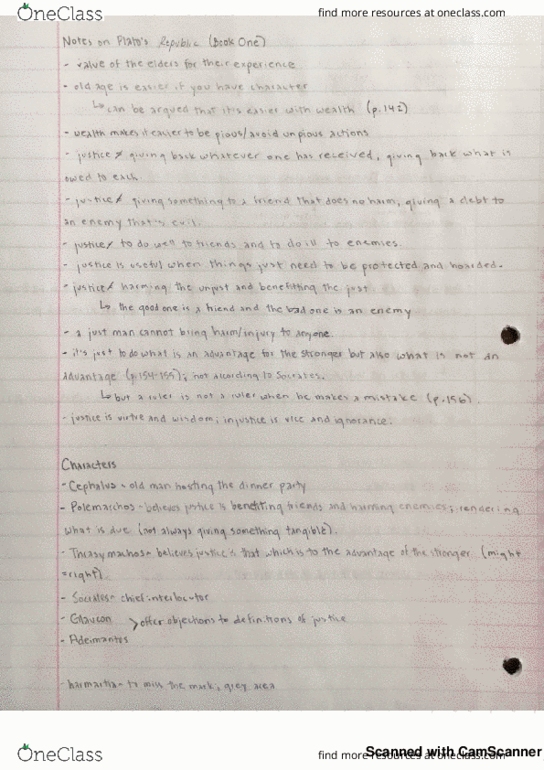 OneClass
find more resources at oneclass.com
Notes on Plato's Republic (Book One)
- value of the elders for their experience
- old age is easier if you have character
↳ can be argued that it's easier with wealth (p.142)
- wealth makes it easier to be pious/avoid unpious actions
- justice ≠ giving back whatever one has received, giving back what is
owed to each.
- justice ≠ giving something to a friend that does no harm, giving a debt to
an enemy that's evil.
- justice ≠ to do well to friends and to do ill to enemies.
- justice is useful when things just need to be protected and hoarded.
- justice ≠ harming the unjust and benefitting the just
↳ the good one is a friend and the bad one is an enemy
- a just man cannot bring harm/injury to anyone.
- it's just to do what is an advantage for the stronger but also what is not an
advantage (p.154-155); not according to Socrates.
↳ but a ruler is not a ruler when he makes a mistake (p.156).
- justice is virtue and wisdom; injustice is vice and ignorance.
Characters
- Cephalus - old man hosting the dinner party
- Polemarchos - believes justice is benefiting friends and harming enemies; rendering
what is due (not always giving something tangible).
- Thrasymachos - believes justice is that which is to the advantage of the stronger (might
=right).
- Socrates - chief interlocutor
- Glaucon > offer objections to definitions of justice
- Adeimantos
- harmartia - to miss the mark; grey area
OneClass
find more resources at oneclass.com
Scanned with CamScanner